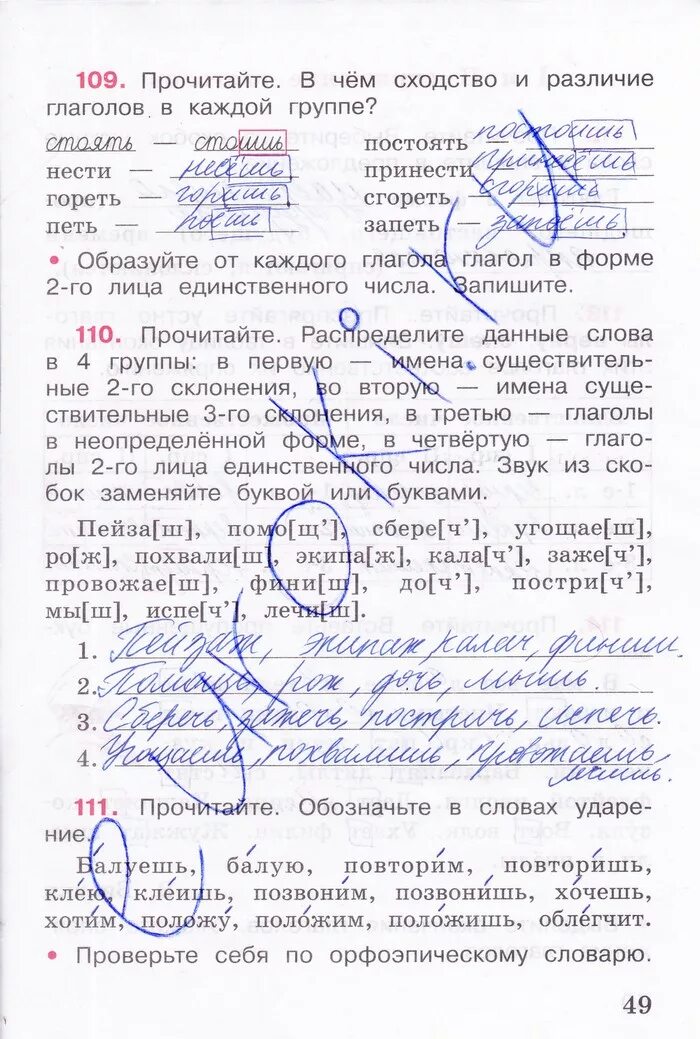 109. Прочитайте. В чём сходство и различие
глаголов в каждой группе?
стоять — стоишь постоять постоишь
нести — несёшь принести — принесёшь
гореть — горишь сгореть — сгоришь
петь — поёшь запеть — запоёшь
• Образуйте от каждого глагола глагол в форме
2-го лица единственного числа. Запишите.
110. Прочитайте. Распределите данные слова
в 4 группы: в первую — имена существитель-
ные 2-го склонения, во вторую — имена суще-
ствительные 3-го склонения, в третью — глаголы
в неопределённой форме, в четвёртую — глаго-
лы 2-го лица единственного числа. Звук из ско-
бок заменяйте буквой или буквами.
Пейза[ш], помо[щ’], сбере[ч’], угощае[ш],
ро[ж], похвали[ш], экипа[ж], кала[ч’], заже[ч’],
провожае[ш], фини[ш], до[ч’], постри[ч’],
мы[ш], испе[ч’], лечи[ш].
1. Пейзаж, экипаж калач, финиш.
2. Помощь, рож, дочь, мышь.
3. Сберечь, зажечь, постричь, испечь.
4. Угощаешь, похвалишь, провожаешь,
лечишь.
111. Прочитайте. Обозначьте в словах ударе-
ние.
Ба́луешь, ба́лую, повтори́м, повтори́шь,
кле́ю, кле́ишь, позвони́м, позвони́шь, хо́чешь,
хоти́м, положу́, поло́жим, поло́жишь, облегчит.
• Проверьте себя по орфоэпическому словарю.
49